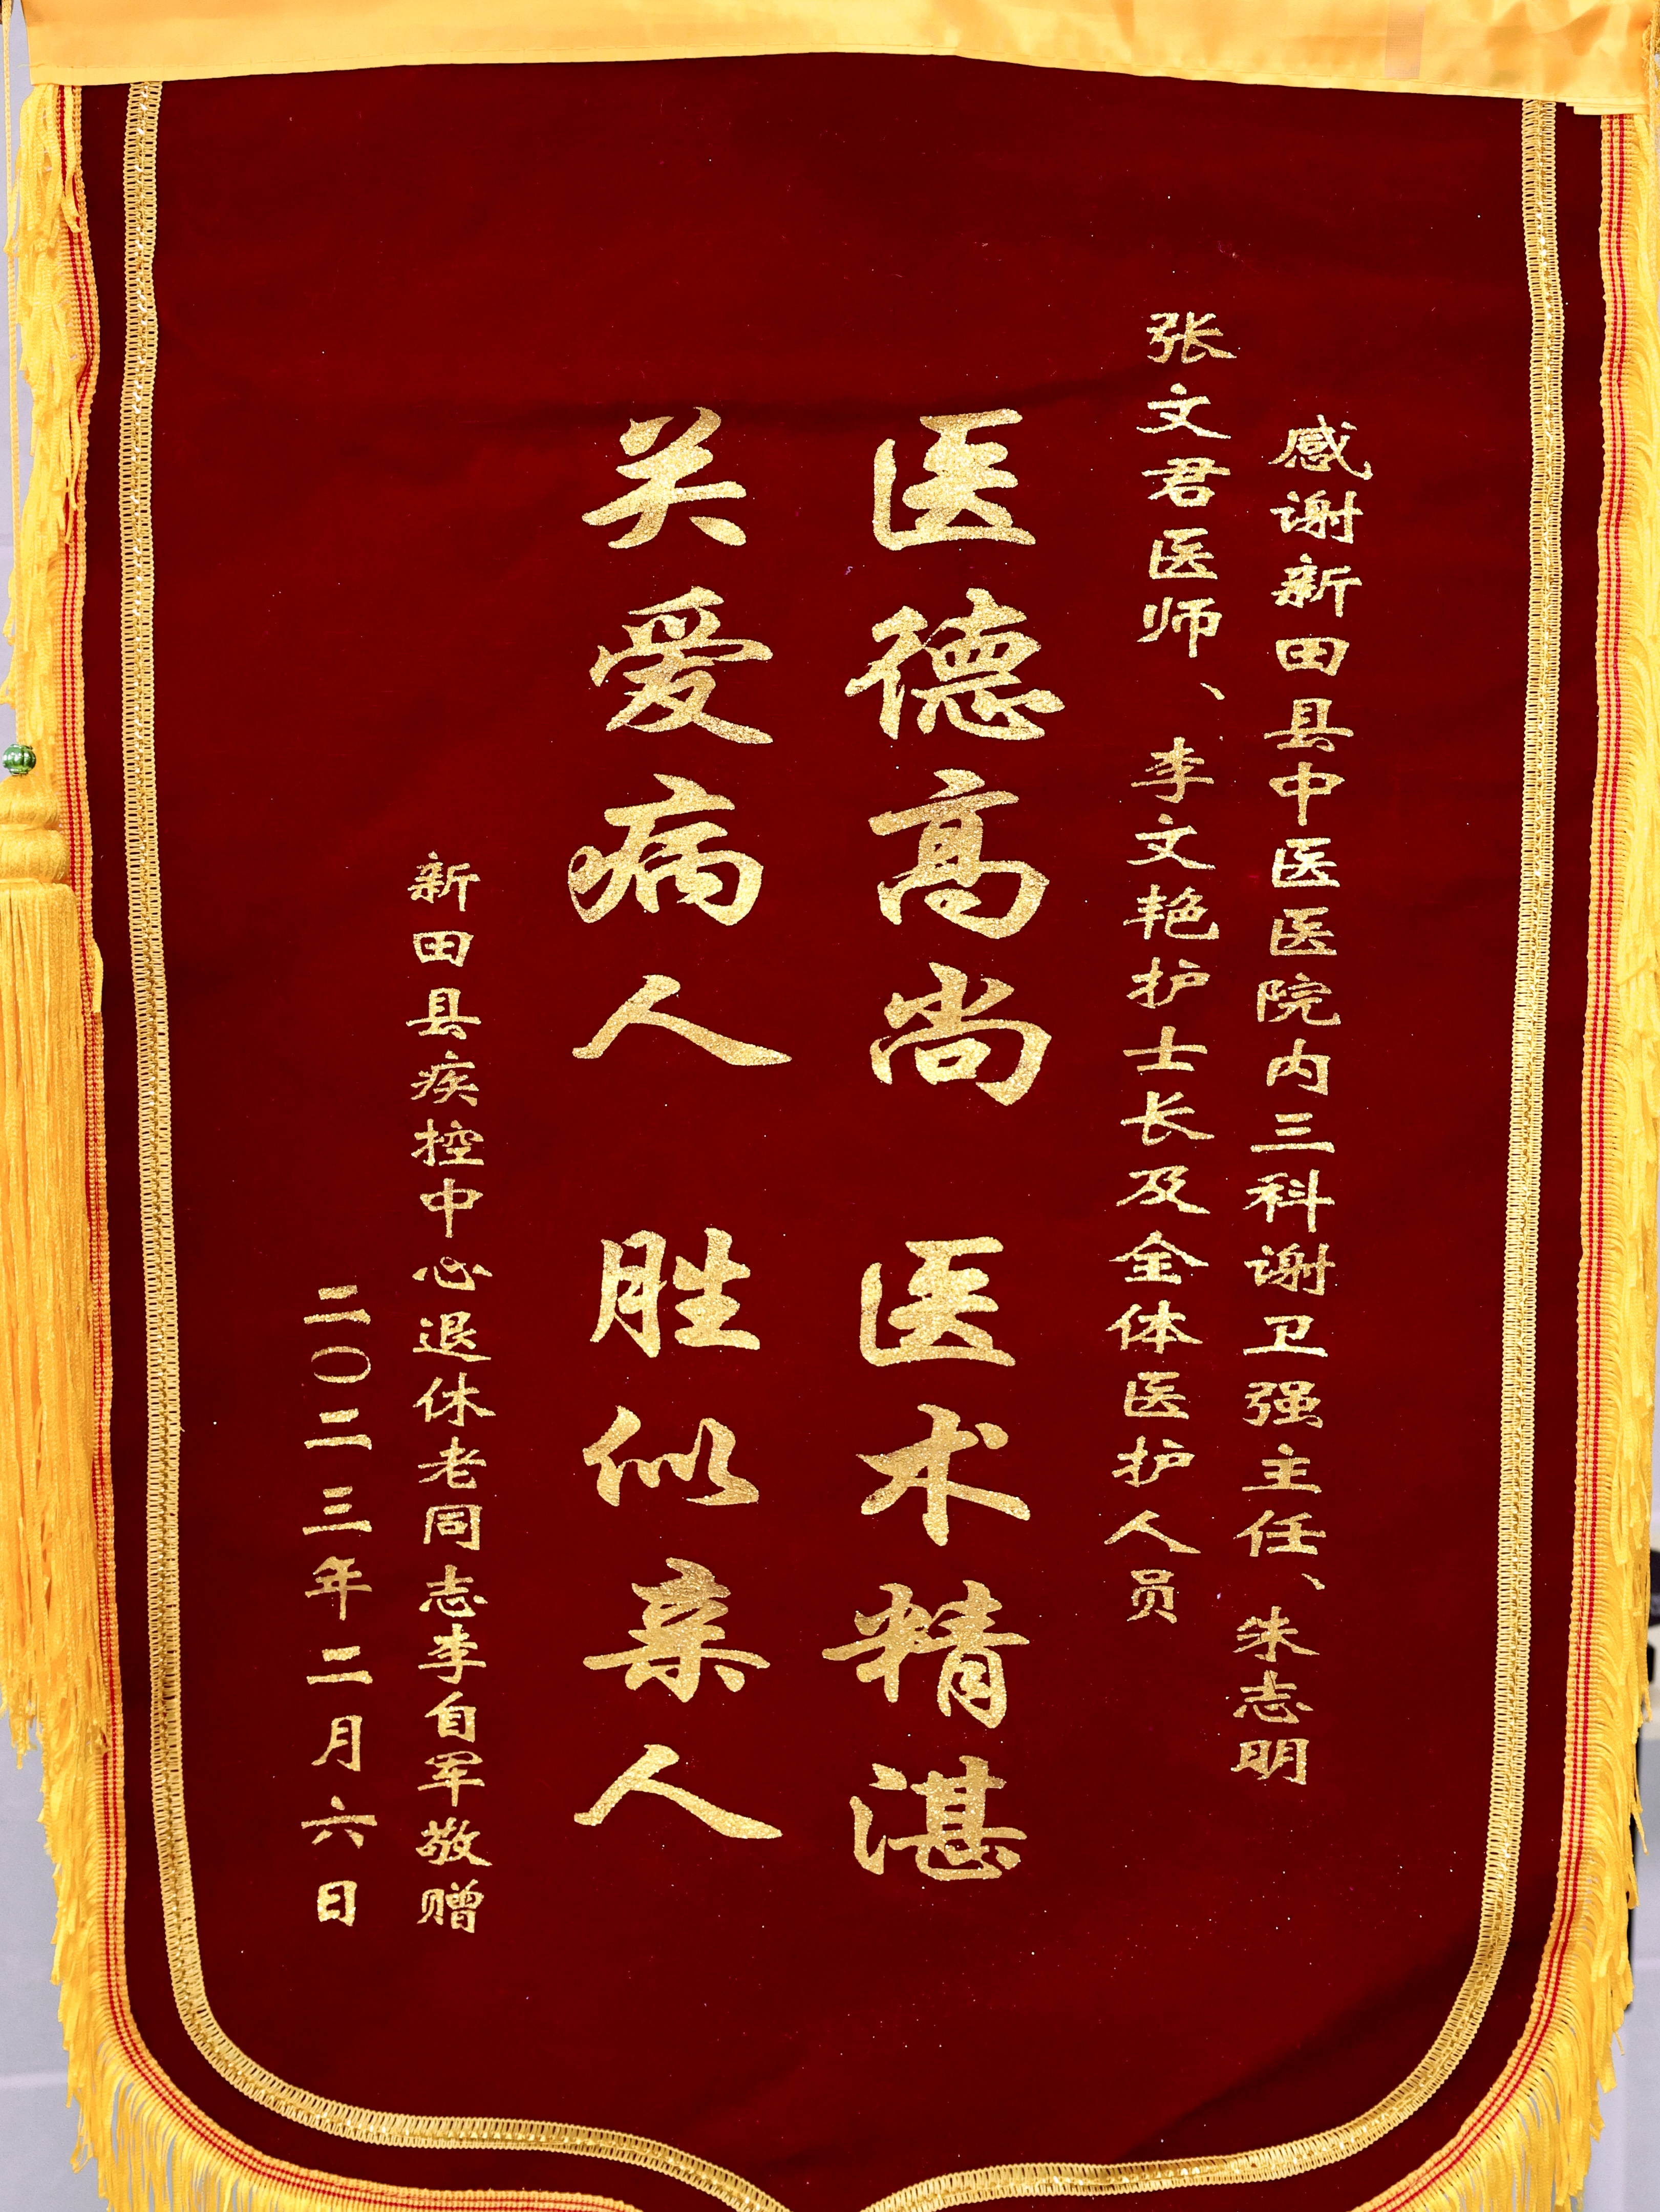 感谢新田县中医医院内三科谢卫强主任、朱志明
张文君医师、李文艳护士长及全体医护人员
医德高尚 医术精湛
关爱病人 胜似亲人
新田县疾控中心退休老同志李自军敬赠
二〇二三年二月六日